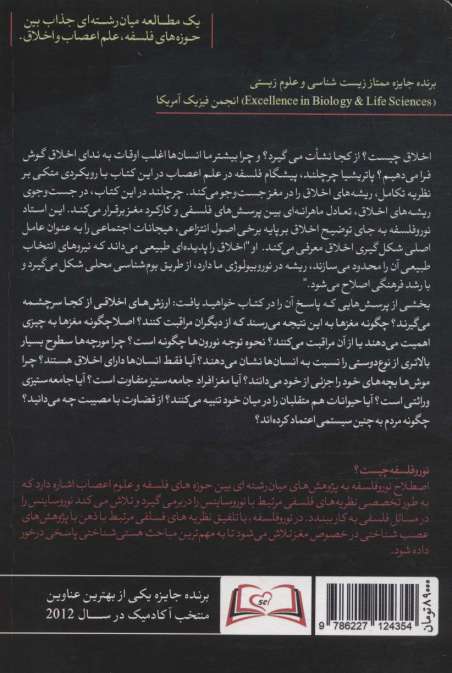 یک مطالعه میان‌رشته‌ای جذاب بین
حوزه‌های فلسفه، علم اعصاب و اخلاق.
برنده جایزه ممتاز زیست شناسی و علوم زیستی
(Excellence in Biology & Life Sciences) انجمن فیزیک آمریکا
اخلاق چیست؟ از کجا نشأت می گیرد؟ و چرا بیشتر ما انسان‌ها اغلب اوقات به ندای اخلاق گوش
فرا می‌دهیم؟ پاتریشیا چرچلند، پیشگام فلسفه در علم اعصاب در این کتاب با رویکردی متکی بر
نظریه تکامل، ریشه‌های اخلاق را در مغز جست‌وجو می‌کند. چرچلند در این کتاب، در جست‌وجوی
ریشه‌های اخلاق، تعادل ماهرانه‌ای بین پرسش‌های فلسفی و کارکرد مغز برقرار می‌کند. این استاد
نوروفلسفه به جای توضیح اخلاق بر پایه برخی اصول انتزاعی، هیجانات اجتماعی را به عنوان عامل
اصلی شکل گیری اخلاق معرفی می‌کند. او "اخلاق را پدیده‌ای طبیعی می‌داند که نیروهای انتخاب
طبیعی آن را محدود می‌سازند، ریشه در نوروبیولوژی ما دارد، از طریق بوم‌شناسی محلی شکل می‌گیرد و
با رشد فرهنگی اصلاح می‌شود."
بخشی از پرسش‌هایی که پاسخ آن را در کتاب خواهید یافت: ارزش‌های اخلاقی از کجا سرچشمه
می‌گیرند؟ چگونه مغزها به این نتیجه می‌رسند که از دیگران مراقبت کنند؟ اصلا چگونه مغزها به چیزی
اهمیت می‌دهند یا از آن مراقبت می‌کنند؟ نحوه توجه نورون‌ها چگونه است؟ چرا مورچه‌ها سطوح بسیار
بالاتری از نوع‌دوستی را نسبت به انسان‌ها نشان می‌دهند؟ آیا فقط انسان‌ها دارای اخلاق هستند؟ چرا
موش‌ها بچه‌های خود را جزئی از خود می‌دانند؟ آیا مغز افراد جامعه‌ستیز متفاوت است؟ آیا جامعه‌ستیزی
وراثتی است؟ آیا حیوانات هم متقلبان را در میان خود تنبیه می‌کنند؟ از قضاوت با مصیبت چه می‌دانید؟
چگونه مردم به چنین سیستمی اعتماد کرده‌اند؟
نوروفلسفه چیست؟
اصطلاح نوروفلسفه به پژوهش‌های میان رشته ای بین حوزه های فلسفه و علوم اعصاب اشاره دارد که
به طور تخصصی نظریه‌های فلسفی مرتبط با نوروساینس را در بر می گیرد و تلاش می کند نوروساینس را
در مسائل فلسفی به کار ببندد. در نوروفلسفه، با تلفیق نظریه های فلسفی مرتبط با ذهن با پژوهش‌های
عصب شناختی در خصوص مغز تلاش می‌شود تا به مهم‌ترین مباحث هستی شناختی پاسخی درخور
داده شود.
برنده جایزه یکی از بهترین عناوین
منتخب آکادمیک در سال 2012
sci
۸۹۰۰۰ تومان
9 786227 124354